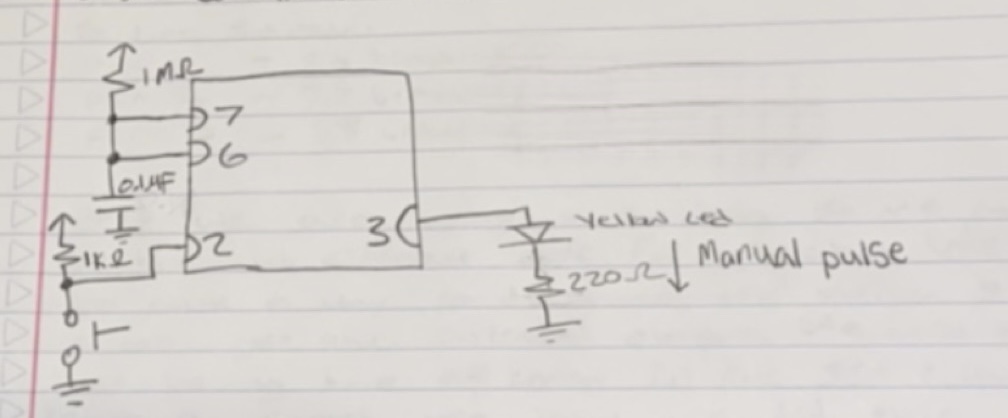 1MΩ
7
6
0.1µF
1KΩ
2
3
Yellow Led
220Ω
Manual pulse